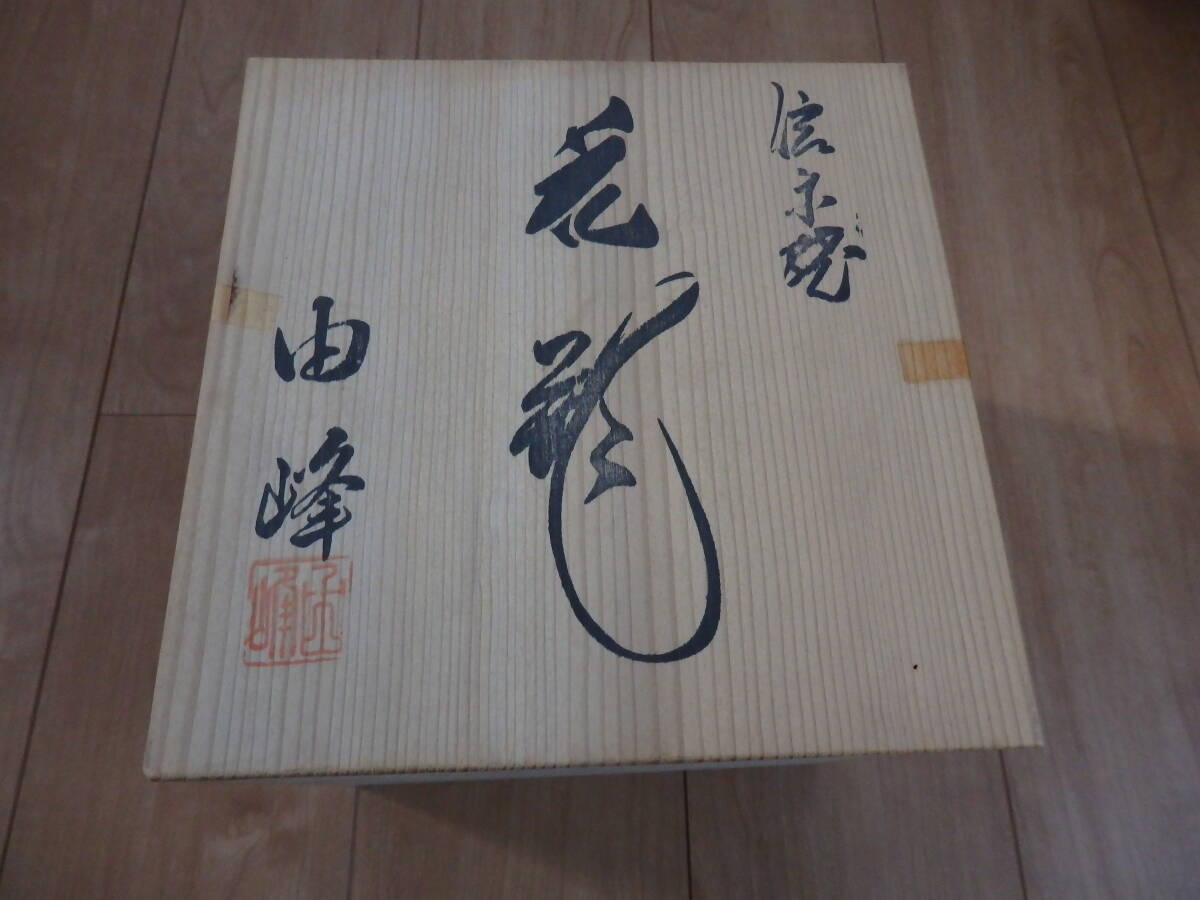 信楽焼
花瓶
由峰